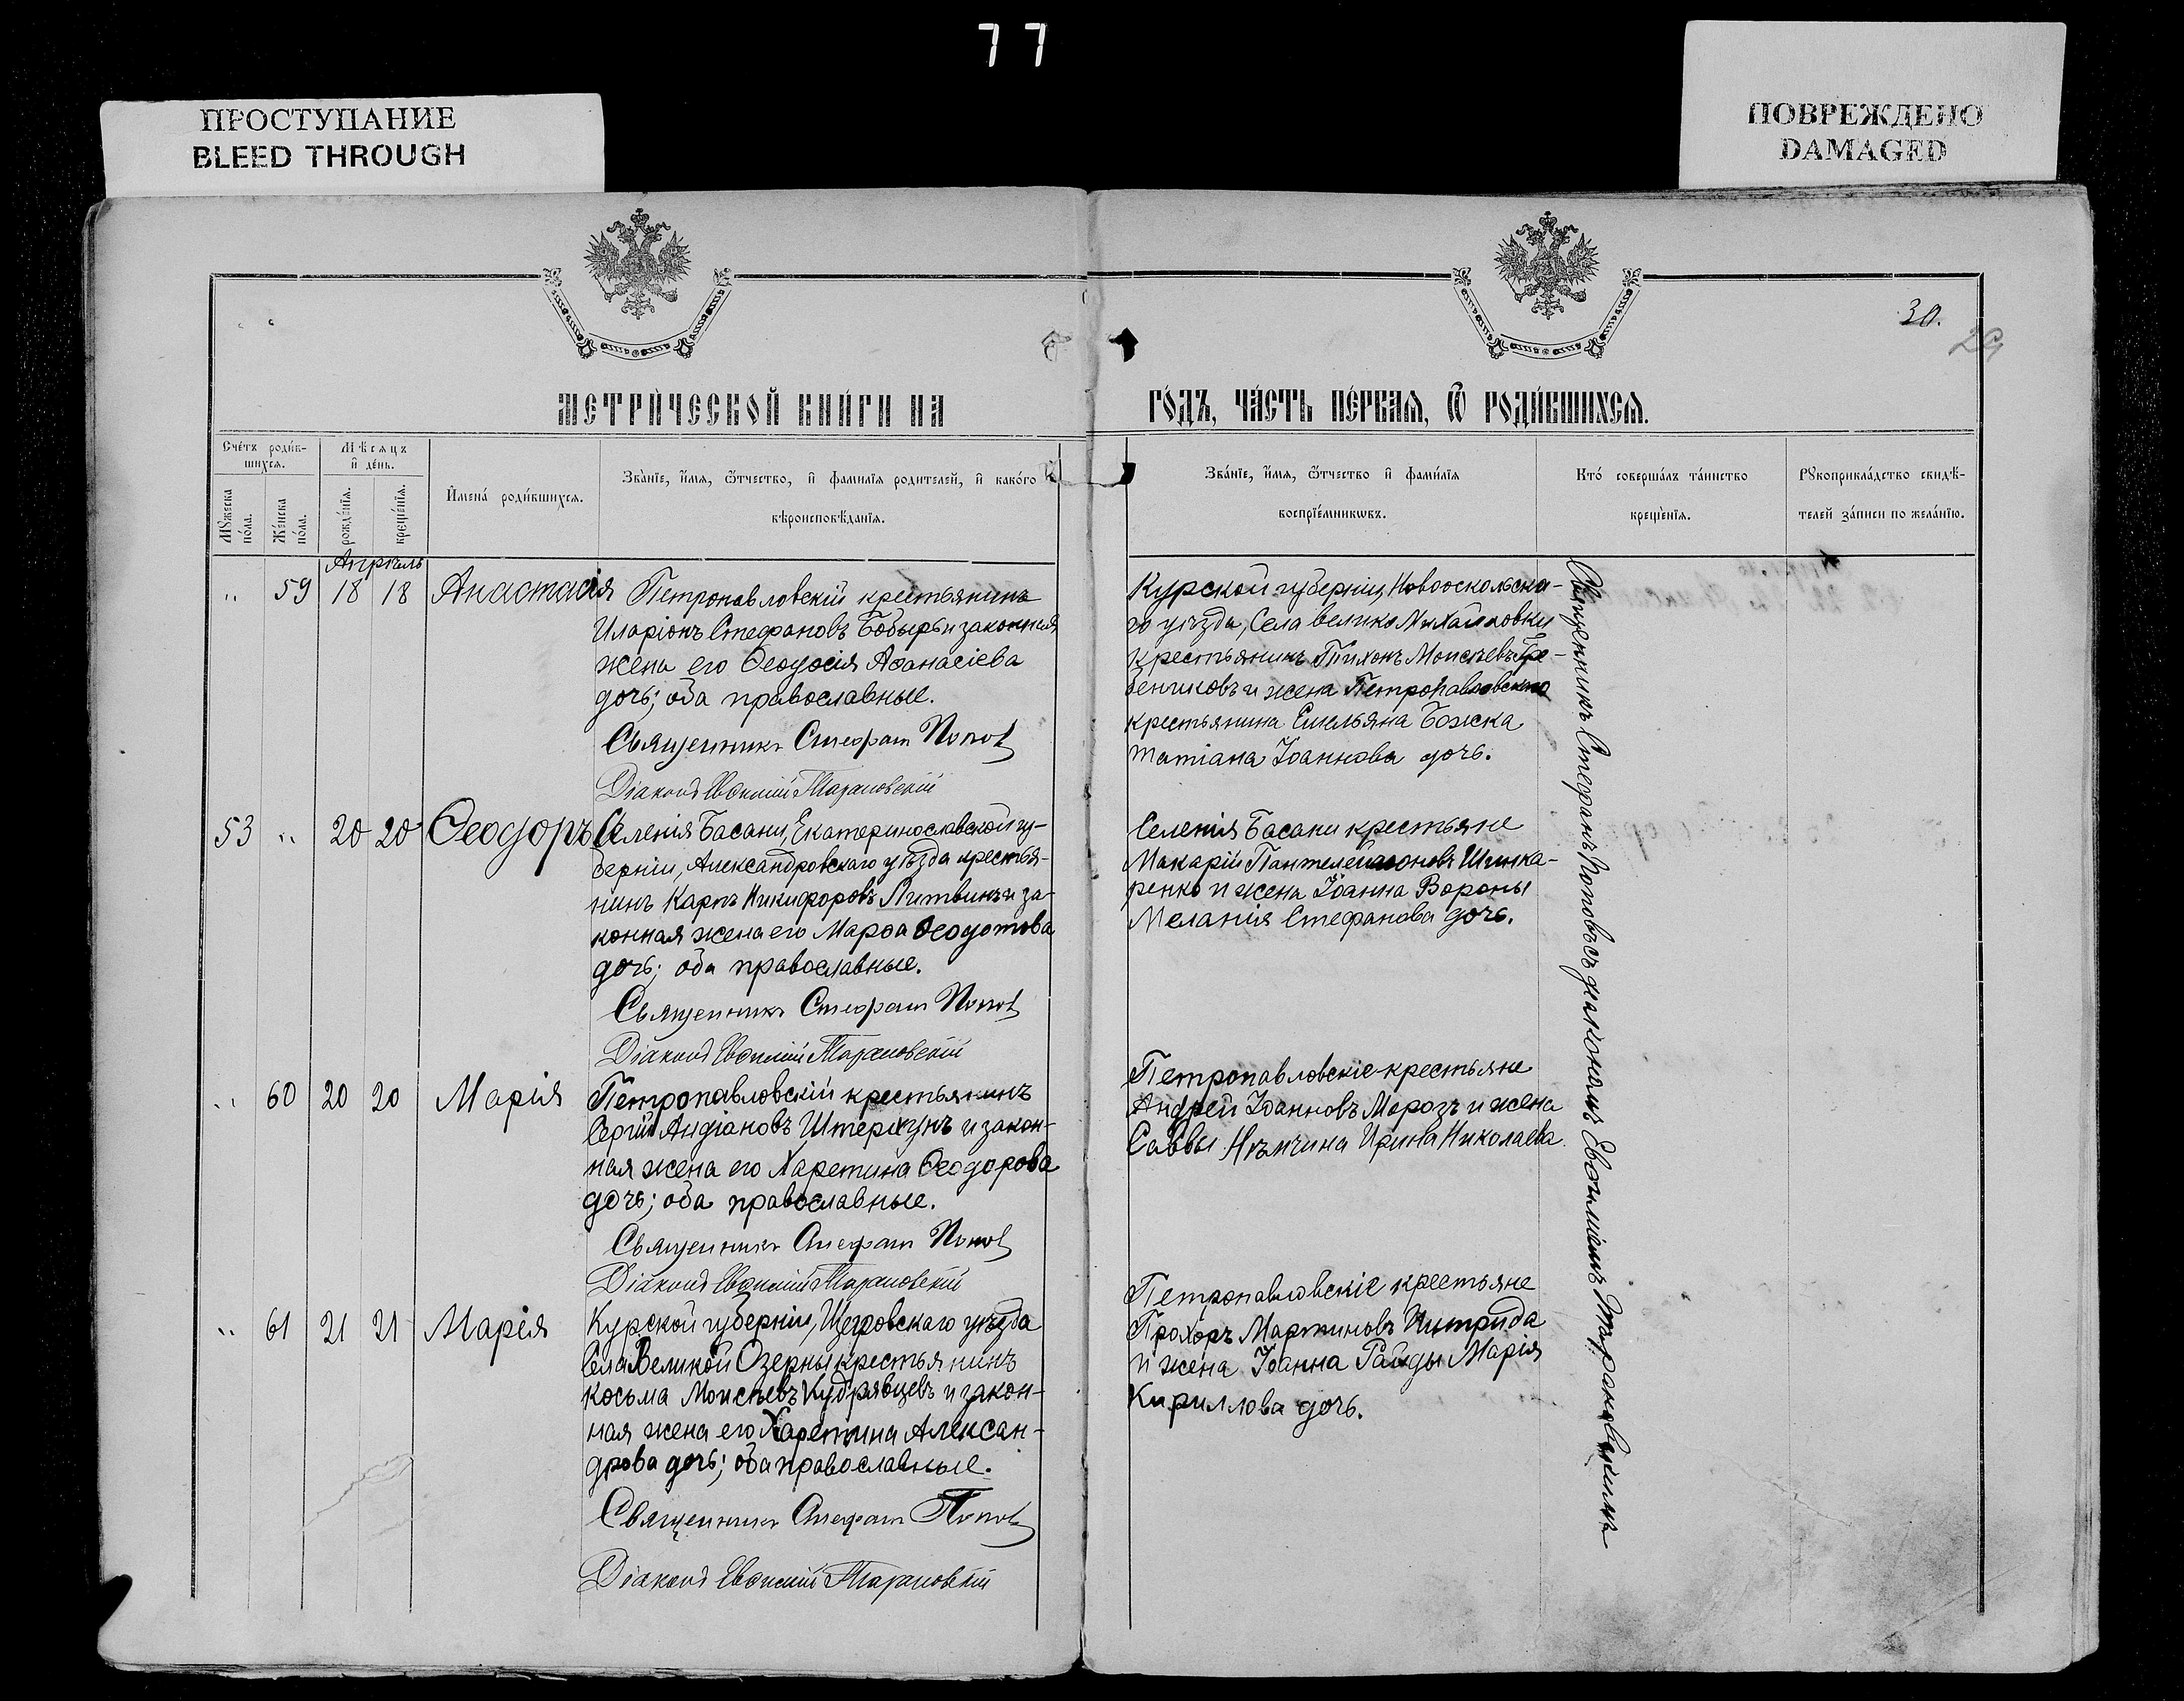 77
ПРОСТУПАНИЕ
BLEED THROUGH
ПОВРЕЖДЕНО
DAMAGED
30.
29
МЕТРИ́ЧЕСКОЙ КНИ́ГИ НА
ГО́ДЪ, ЧА́СТЬ ПЕ́РВАѦ, Ѽ РОДИ́ВШИХСѦ.
Сче́тъ роди́в-
шихсѧ.
Мꙋ́жеска по́ла.
Же́нска по́ла.
Мѣ́сѧцъ
и҆ де́нь.
рожде́нїѧ.
креще́нїѧ.
И҆мена̀ роди́вшихсѧ.
Зва́нїе, и҆́мѧ, ѻ҆́тчество, и҆ фами́лїѧ роди́телей, и҆ како́го
вѣроисповѣ́данїѧ.
Зва́нїе, и҆́мѧ, ѻ҆́тчество и҆ фами́лїѧ
воспрїе́мникѡвъ.
Кто̀ соверша́лъ та́инство
креще́нїѧ.
Рꙋкоприкла́дство свидѣ́-
телей за́писи по жела́нїю.
Апрѣль
" 59 18 18 Анастасія
Петропавловскій крестьянинъ
Иларіонъ Стефановъ Бобырь и законная
жена его Ѳеодосія Аѳанасіева
дочь; оба православные.
Священникъ Стефанъ Попов
Діаконъ Евѳимій Тарановскій
Курской губерніи, Новооскольска-
го уѣзда, Села Велико Михайловки
крестьянинъ Тихонъ Моисеевъ Гре-
бенчиковъ и жена Петропавловскаго
крестьянина Емельяна Божка
Татіана Іоаннова дочь.
53 " 20 20 Ѳеодоръ
Селенія Басани, Екатеринославской гу-
берніи, Александровскаго уѣзда крестья-
нинъ Карпъ Никифоровъ Литвинъ и за-
конная жена его Марѳа Ѳеодотова
дочь; оба православные.
Священникъ Стефанъ Попов
Діаконъ Евѳимій Тарановскій
Селенія Басани крестьяне
Макарій Пантелеймоновъ Шинка-
ренко и жена Іоанна Вороны
Меланія Стефанова дочь.
" 60 20 20 Марія
Петропавловскій крестьянинъ
Сергій Андіановъ Штерхунъ и закон-
ная жена его Харетина Ѳеодорова
дочь; оба православные.
Священникъ Стефанъ Попов
Діаконъ Евѳимій Тарановскій
Петропавловскіе крестьяне
Андрей Іоанновъ Морозъ и жена
Саввы Нѣмчина Ирина Николаева
" 61 21 21 Марія
Курской губерніи, Щегровскаго уѣзда
Села Великой Озерны крестьянинъ
Косьма Моисѣевъ Кудрявцевъ и закон-
ная жена его Харетина Алексан-
дрова дочь; оба православные.
Священникъ Стефанъ Попов
Діаконъ Евѳимій Тарановскій
Петропавловскіе крестьяне
Прохоръ Мартиновъ
и жена Іоанна Гайды Марія
Кириллова дочь.
Священникъ Стефанъ Поповъ съ діакономъ Евѳиміемъ Тарановскимъ